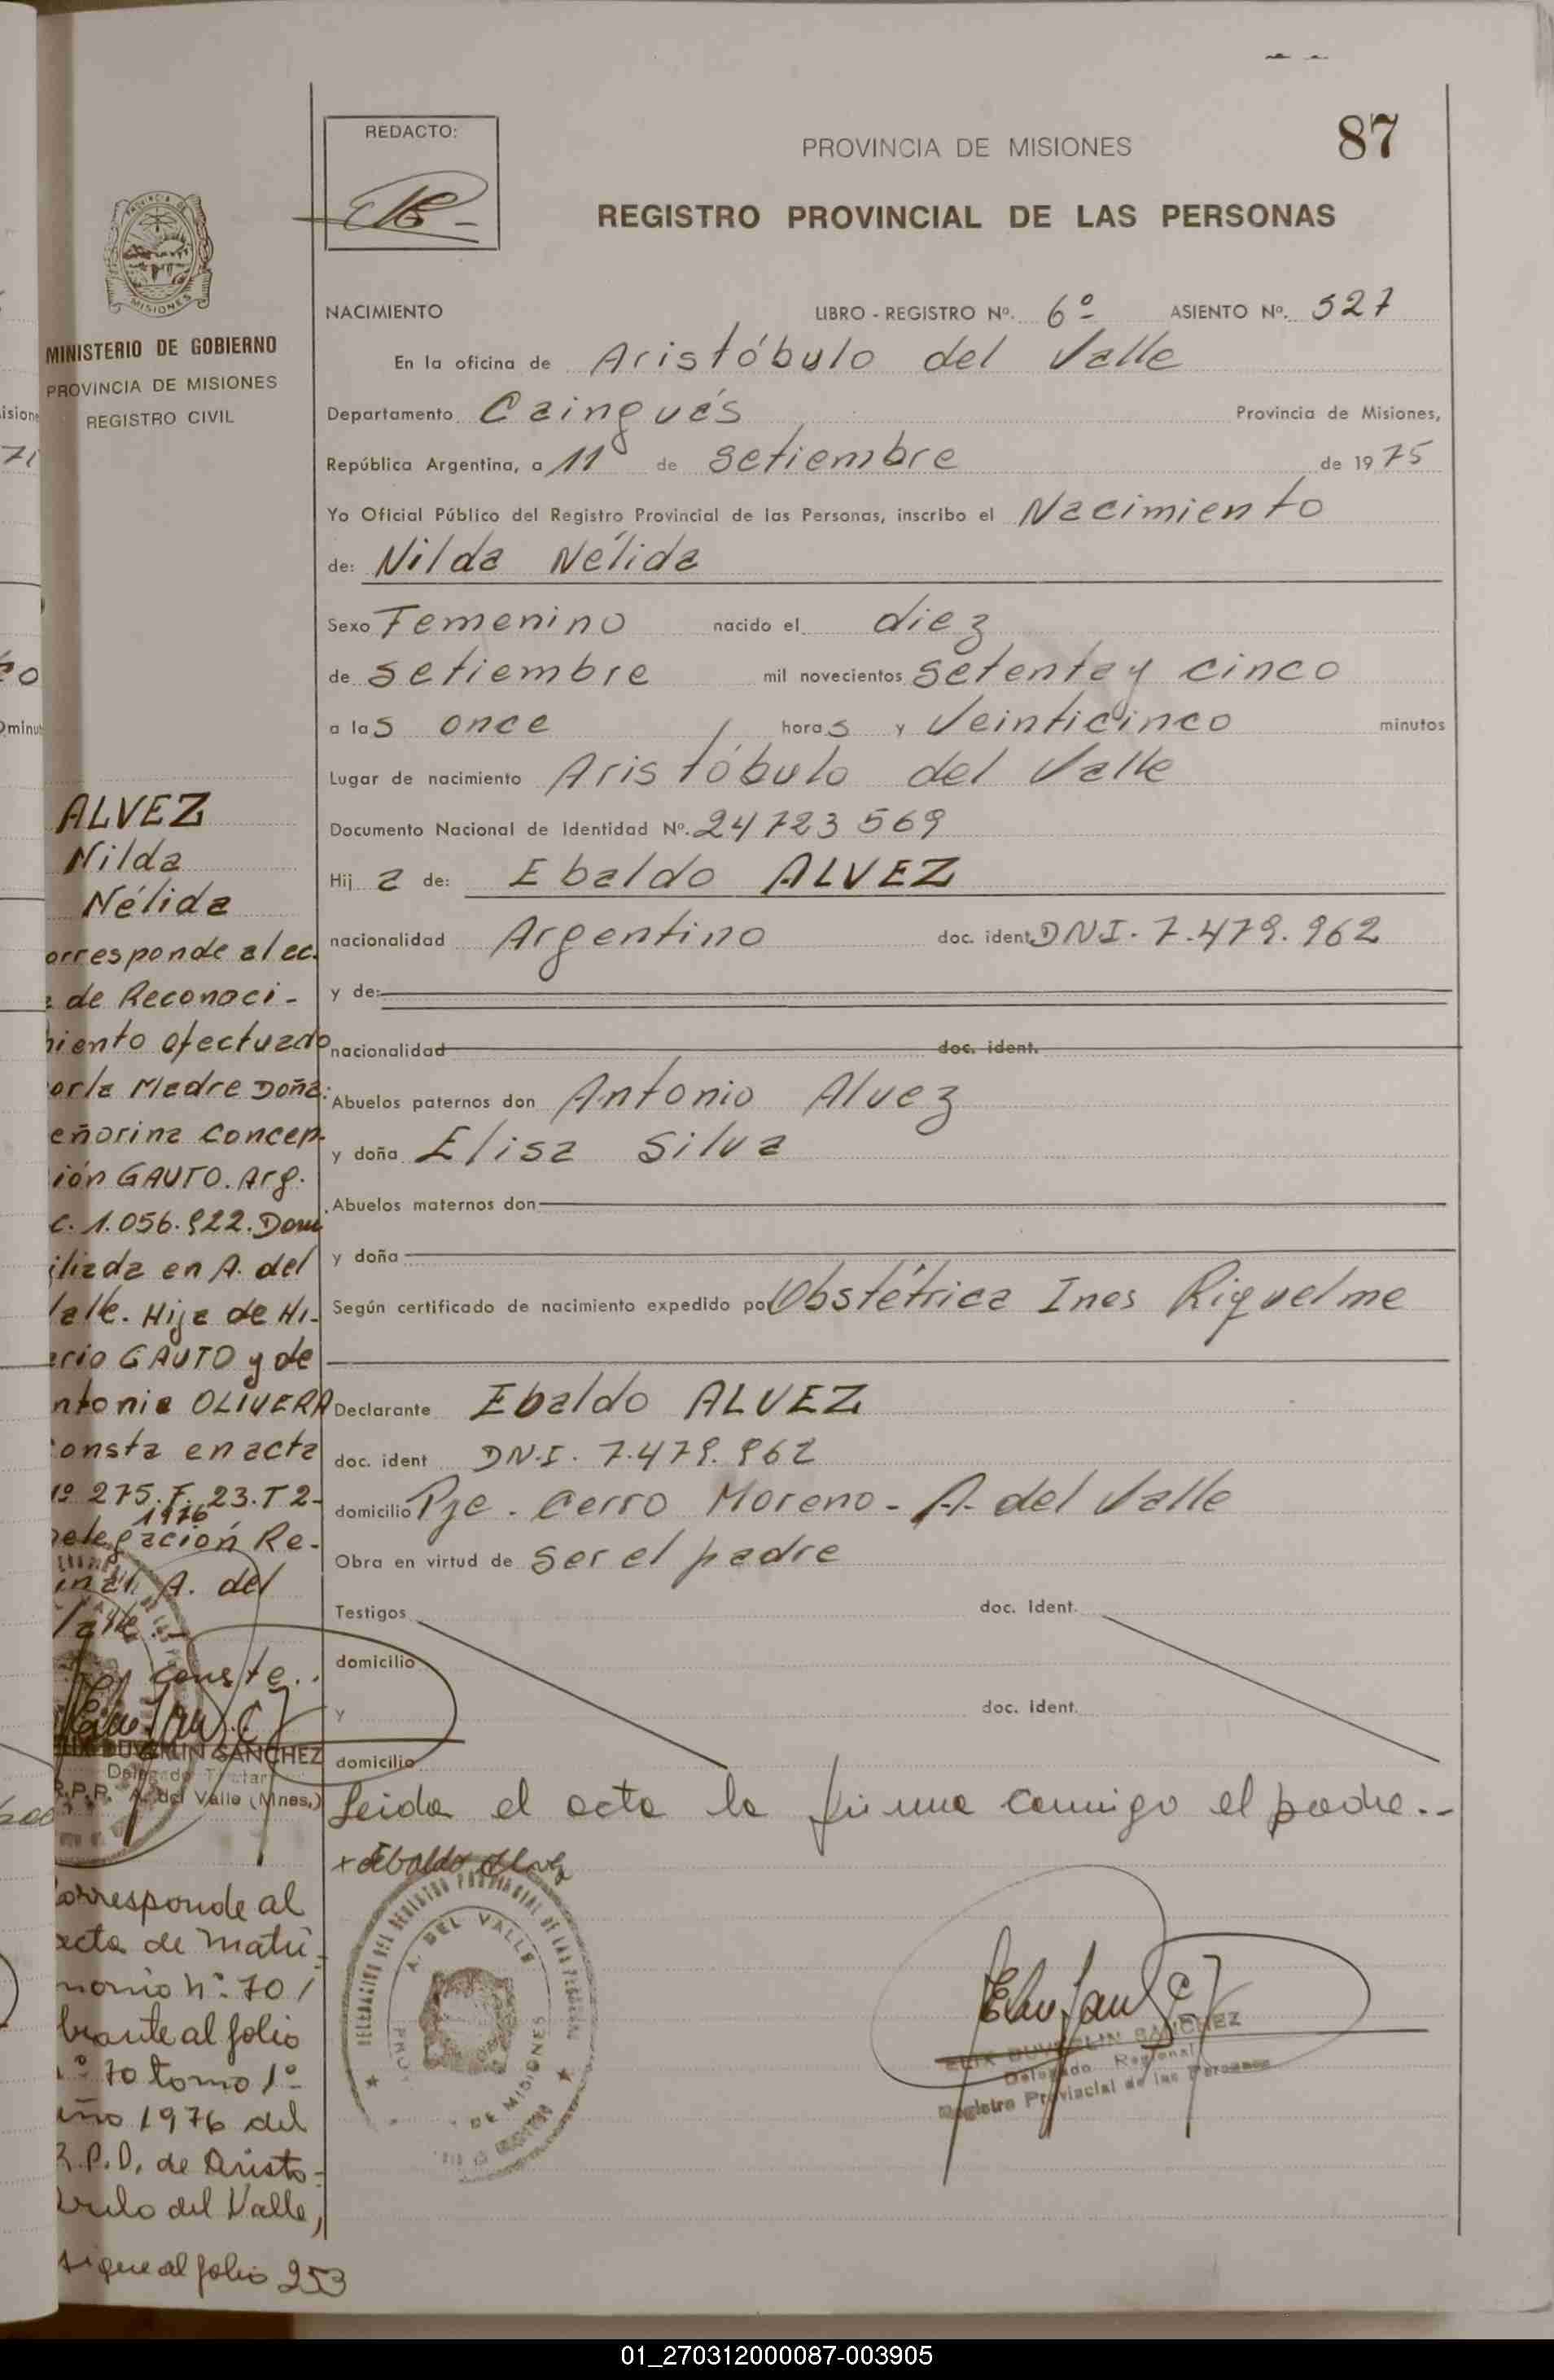 87
REDACTO:
PROVINCIA DE MISIONES
REGISTRO PROVINCIAL DE LAS PERSONAS
MISIONES
MINISTERIO DE GOBIERNO
PROVINCIA DE MISIONES
REGISTRO CIVIL
NACIMIENTO LIBRO - REGISTRO Nº. 6º ASIENTO Nº. 527
En la oficina de Aristóbulo del Valle
Departamento Cainguás Provincia de Misiones,
República Argentina, a 11 de setiembre de 1975
Yo Oficial Público del Registro Provincial de las Personas, inscribo el Nacimiento
de: Nilda Nélida
Sexo Femenino nacido el diez
de setiembre mil novecientos setenta y cinco
a las once horas y veinticinco minutos
Lugar de nacimiento Aristóbulo del Valle
Documento Nacional de Identidad Nº. 24723569
Hija de: Ebaldo ALVEZ
nacionalidad Argentino doc. ident DNI. 7.479.962
y de:
nacionalidad doc. ident.
Abuelos paternos don Antonio Alvez
y doña Elisa Silva
Abuelos maternos don
y doña
Según certificado de nacimiento expedido por Obstétrica Ines Riquelme
Declarante Ebaldo ALVEZ
doc. ident DN.I. 7.479.962
domicilio Pje. Cerro Moreno - A. del Valle
Obra en virtud de ser el padre
Testigos doc. ident.
domicilio
y doc. ident.
domicilio
Leida el acta la firma conmigo el padre.--
+ Ebaldo Alvez
A. DEL VALLE
DE MISIONES
ELIX DUVERLIN SANCHEZ
Delegado Regional
Registro Provincial de las Personas
ALVEZ
Nilda
Nélida
orresponde al ac.
de Reconoci-
iento efectuado
or la Madre Doña:
eñorina Concep-
ión GAUTO. Arg.
C. 1.056.922. Domi
iliada en A. del
alle. Hija de Hi-
ario GAUTO y de
ntonia OLIVERA
onsta en acta
º 275. F. 23. T 2-
1976
elegación Re-
A. del
Valle.-
Conste..
DUVERLIN SANCHEZ
Delegado Titular
R.P.P. A. del Valle (Mnes.)
orresponde al
acta de matri-
monio nº 70 /
brante al folio
º 70 tomo 1º
año 1976 del
R.P.P. de Aristo-
bulo del Valle,
sigue al folio 253
01_270312000087-003905